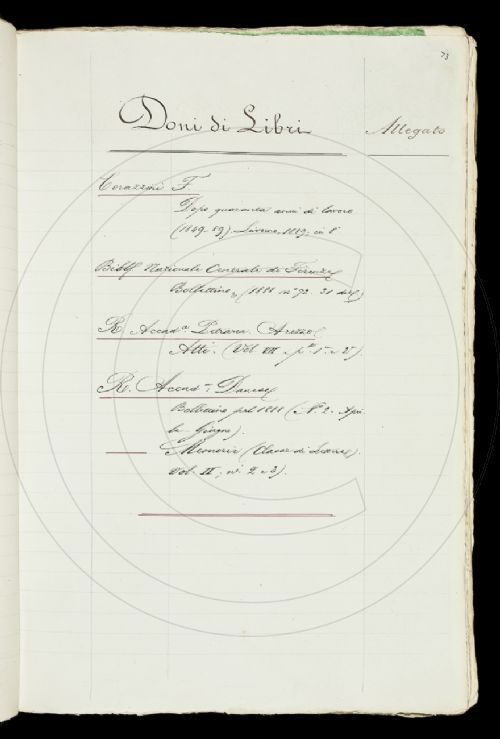 73
Doni di Libri
Allegato
Corazzini F.
Dopo quaranta anni di lavoro
(1849-89) Livorno, 1889. in 8°
Bibl. Nazionale Centrale di Firenze
Bollettino, (1888 n° 72. 31 dic.)
R. Accad.a Petrarca. Arezzo
Atti. (Vol. VII. p.
R. Accad. Danese
Bollettino pel 1888 (N° 2. Apri
le - Giugno).
Memorie (Classe di Lettere).
Vol. II; n.